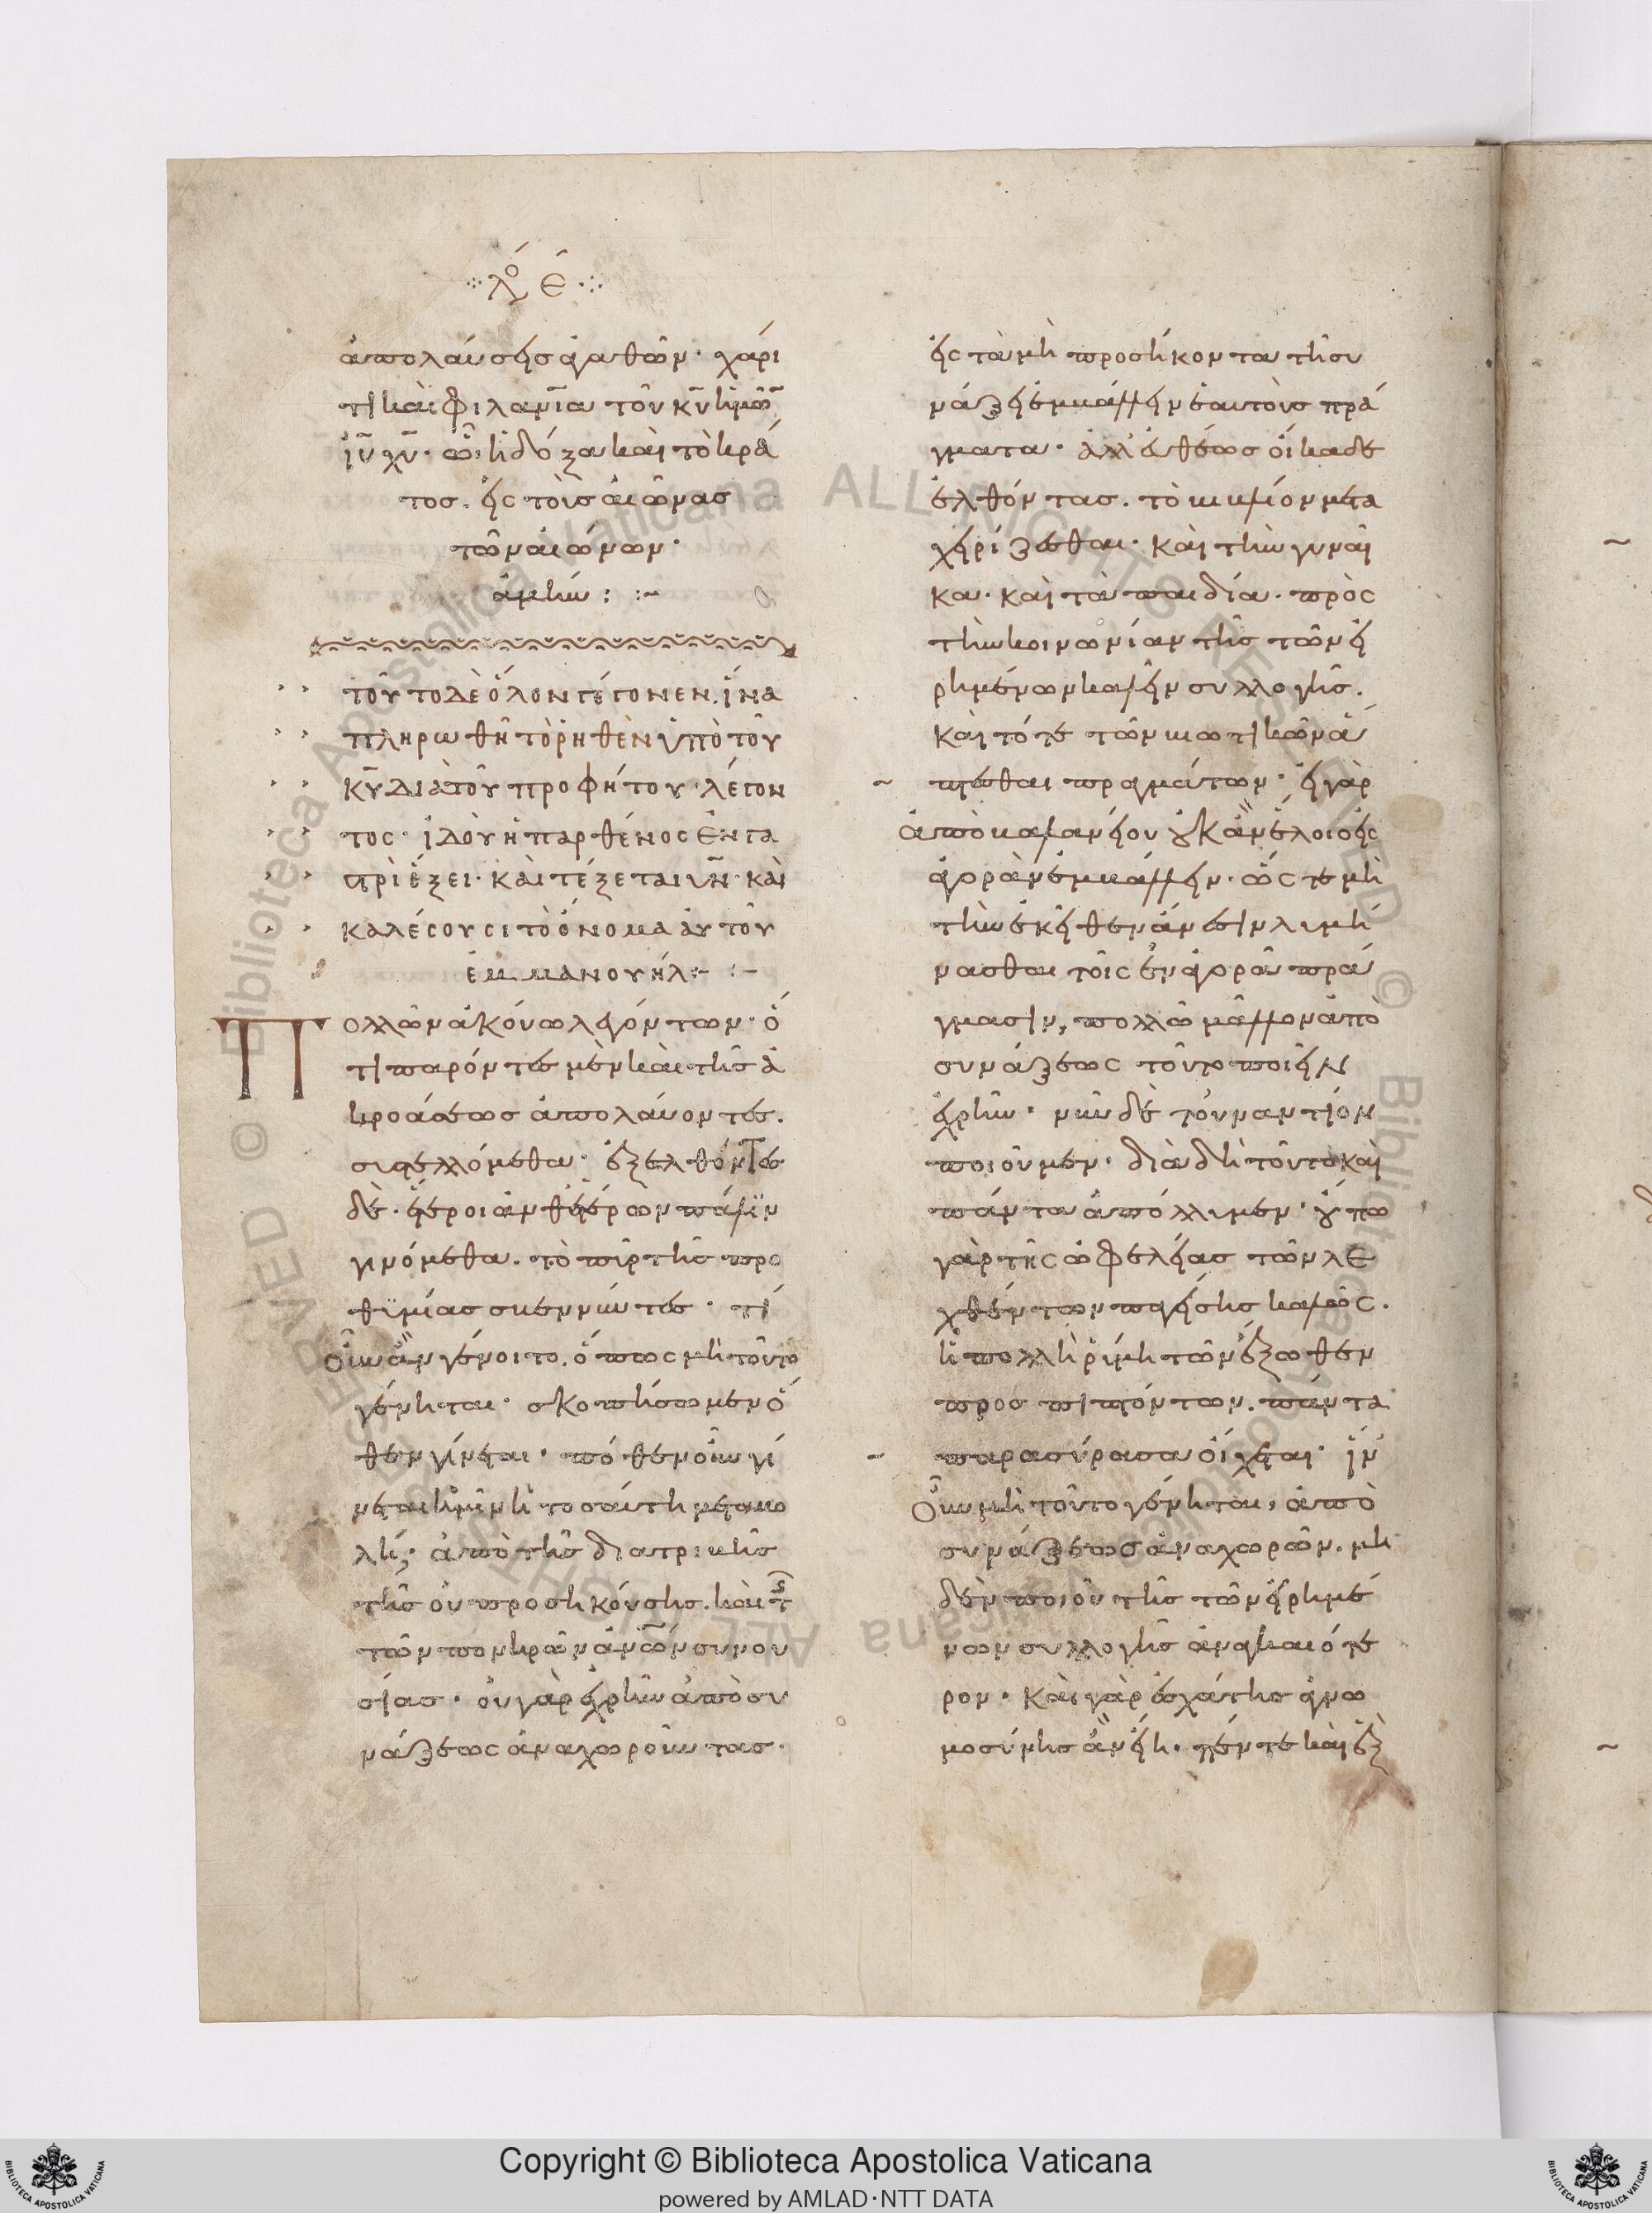 λο̅ ε̅
ἀπολαύσεις ἀγαθῶν· χάρι
τι καὶ φιλανι̅α τοῦ κυ̅ ἡμῶν
ιυ̅ χυ̅· ὧ ἡ δόξα καὶ τὸ κρά
τος. εἰς τοὺς αἰῶνας
τῶν αἰώνων·
ἀμήν: :~
τοῦτο δὲ ὅλον γέγονεν. ἵνα
πληρωθῇ τὸ ῥηθὲν ὑπὸ τοῦ
κυ̅ διὰ τοῦ προφήτου· λέγον
τος· ἰδοὺ ἡ παρθένος ἐν γα
στρὶ ἕξει· καὶ τέξεται υν̅· καὶ
καλέσουσι τὸ ὄνομα αὐτοῦ
ἐμμανουήλ:~ :~
Πολλῶν ἀκούω λεγόντων· ὅ
τι παρόντες μὲν καὶ τῆς ἀ
κροάσεως ἀπολαύοντες.
συστελλόμεθα· ἐξελθόντες
δὲ· ἕτεροι ἀνθ' ἑτέρων πάλιν
γινόμεθα. τὸ πῦρ τῆς προ
θυμίας σβεννῦντες· τί
οὖν ἂν γένοιτο. ὅπως μὴ τοῦτο
γένηται· σκοπήσωμεν ὅ
θεν γίνεται· πόθεν οὖν γί
νεται ἡμῖν ἡ τοσαύτη μεταβο
λή; ἀπὸ τῆς διατριβῆς
τῆς οὐ προσηκούσης. καὶ τῆς
τῶν πονηρῶν ἀνω̅ν συνου
σίας· οὐ γὰρ ἐχρῆν ἀπὸ συ
νάξεως ἀναχωροῦντας.
εἰς τὰ μὴ προσήκοντα τῇ συ
νάξει ἐμβάλλειν ἑαυτοὺς πρά
γματα· ἀλλ' εὐθέως οἴκαδε
ἐλθόντας. τὸ βιβλίον μετα
χειρίζεσθαι· καὶ τὴν γυναῖ
κα· καὶ τὰ παιδία· πρὸς
τὴν κοινωνίαν τῆς τῶν εἰ
ρημένων καλεῖν συλλογῆς.
καὶ τότε τῶν βιωτικῶν ἅ
πτεσθαι πραγμάτων· εἰ γὰρ
ἀπὸ βαλανείου οὐκ ἂν ἕλοιο εἰς
ἀγορὰν ἐμβάλλειν· ὥστε μὴ
τὴν ἐκεῖθεν ἄνεσιν λυμή
νασθαι τοῖς ἐν ἀγορᾶ πρά
γμασιν, πολλῶ μᾶλλον ἀπὸ
συνάξεως τοῦτο ποιεῖν
ἐχρῆν· νῦν δὲ τοὐναντίον
ποιοῦμεν· διὰ δὴ τοῦτο καὶ
πάντα ἀπόλλυμεν· οὔπω
γὰρ τῆς ὠφελείας τῶν λε
χθέντων παγείσης καλῶς.
ἡ πολλὴ ῥύμη τῶν ἔξωθεν
προσπιπτόντων. πάντα
παρασύρασα οἴχεται· ἵν'
οὖν μὴ τοῦτο γένηται, ἀπὸ
συνάξεως ἀναχωρῶν. μη
δὲν ποιοῦ τῆς τῶν εἰρημέ
νων συλλογῆς ἀναγκαιότε
ρον· καὶ γὰρ ἐσχάτης ἀγνω
μοσύνης ἂν εἴη. πέντε καὶ ἓξ
Copyright © Biblioteca Apostolica Vaticana
powered by AMLAD·NTT DATA